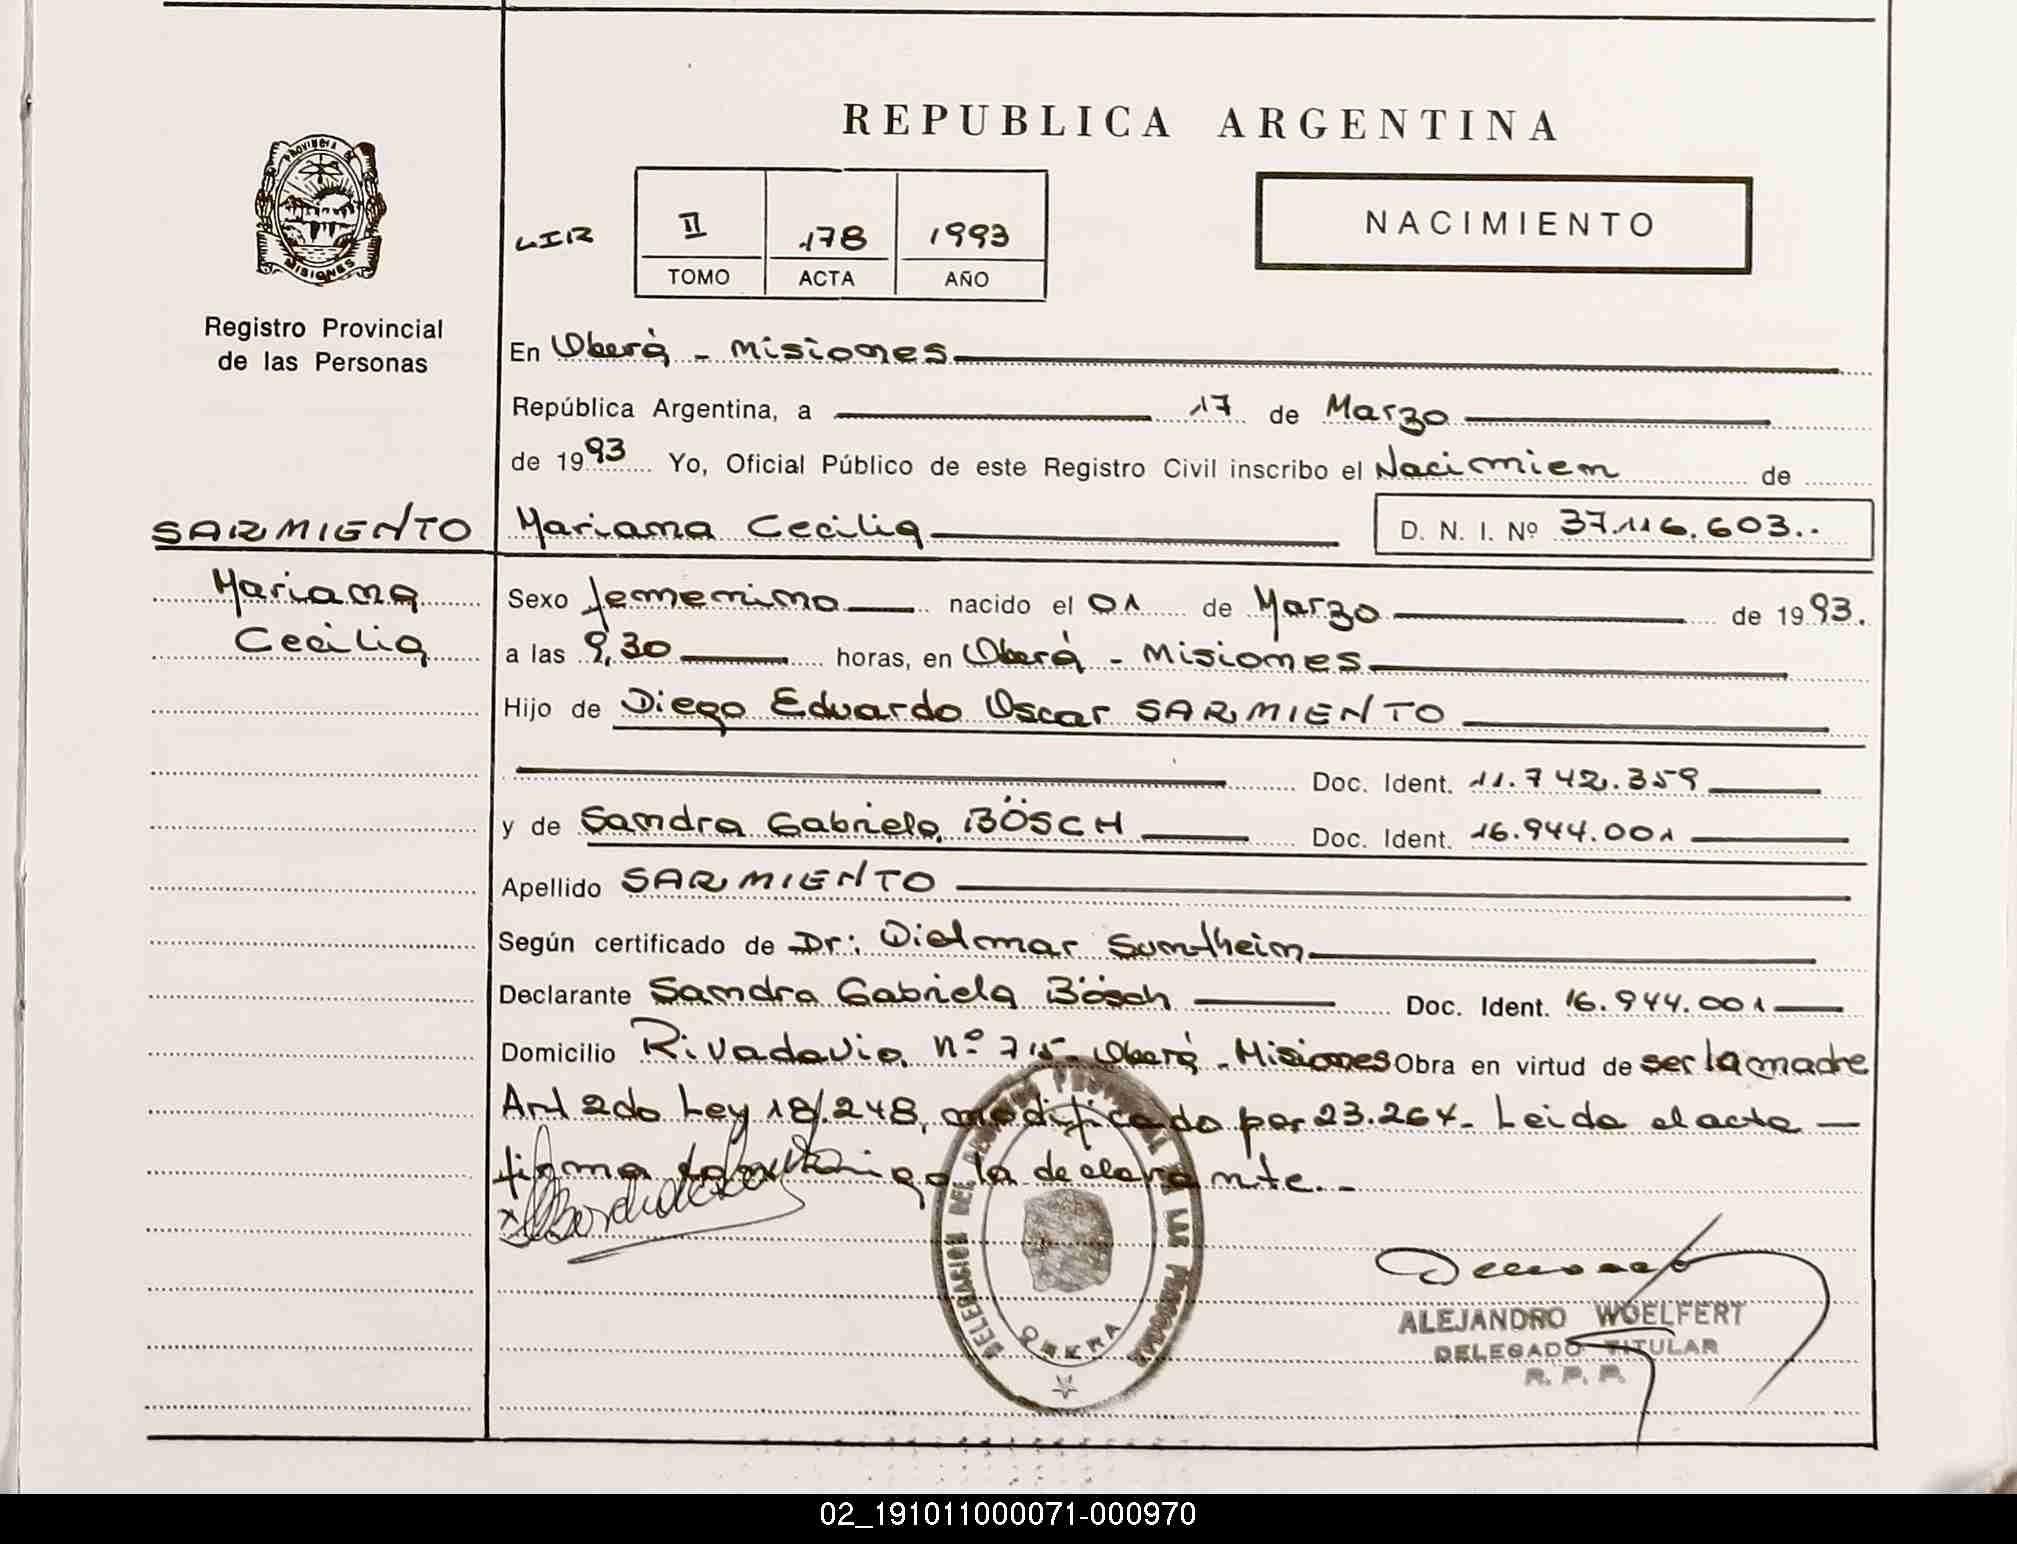 REPUBLICA ARGENTINA
PROVINCIA DE
MISIONES
LIR
II 178 1993
TOMO ACTA AÑO
NACIMIENTO
Registro Provincial
de las Personas
En Oberá - Misiones
República Argentina, a 17 de Marzo
de 1993 Yo, Oficial Público de este Registro Civil inscribo el Nacimien de
SARMIENTO Mariana Cecilia D. N. I. Nº 37.116.603..
Mariana
Cecilia
Sexo femenino nacido el 01 de Marzo de 1993.
a las 9,30 horas, en Oberá - Misiones
Hijo de Diego Eduardo Oscar SARMIENTO
Doc. Ident. 11.742.359
y de Sandra Gabriela BÖSCH Doc. Ident. 16.944.001
Apellido SARMIENTO
Según certificado de Dr: Dietmar Sundheim
Declarante Sandra Gabriela Bösch Doc. Ident. 16.944.001
Domicilio Rivadavia nº 715- Oberá - Misiones Obra en virtud de ser la madre
Art 2do Ley 18.248, modificado por 23.264- Leida el acta —
firma la declarante.-
DELEGACION DEL REGISTRO PROVINCIAL DE LAS PERSONAS
OBERA
ALEJANDRO WOELFERT
DELEGADO TITULAR
R. P. P.
02_191011000071-000970